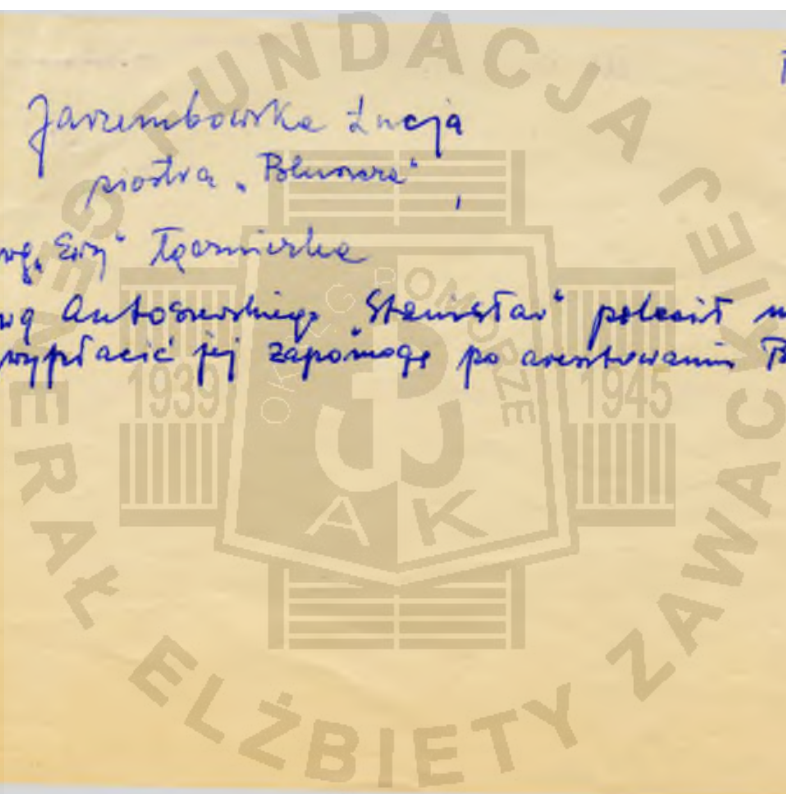 Jarzembowska Łucja
siostra „
wg „Ewy” łączniczka
wg Antoszewskiego "Stanisław" polecił
wypłacić jej zapomogę po aresztowaniu
FUNDACJA
GENERAŁ ELŻBIETY ZAWACKIEJ
OKRĘG POMORZE
1939 1945
AK